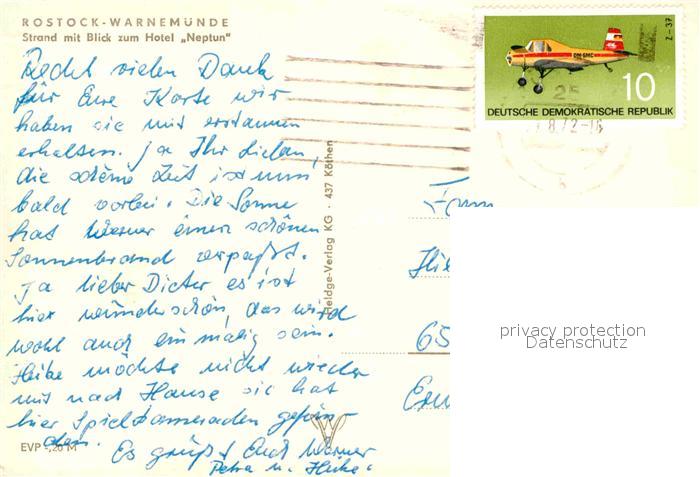 ROSTOCK-WARNEMÜNDE
Strand mit Blick zum Hotel „Neptun"
Recht vielen Dank
für Eure Karte wir
haben sie mit erstaunen
erhalten. Ja Ihr Lieben,
die schöne Zeit ist nun
bald vorbei. Die Sonne
hat Werner einen schönen
Sonnenbrand verpaßt.
Ja lieber Dieter es ist
hier wunderschön, das wird
wohl auch einmalig sein.
Heike möchte nicht wieder
mit nach Hause sie hat
hier Spielkameraden gefun-
den.
Es grüßt Euch Werner
Petra u. Heike
EVP -,20 M
Heldge-Verlag KG · 437 Köthen
Z-37
DM-SMC
10
DEUTSCHE DEMOKRATISCHE REPUBLIK
25
8.72-18
65
privacy protection
Datenschutz